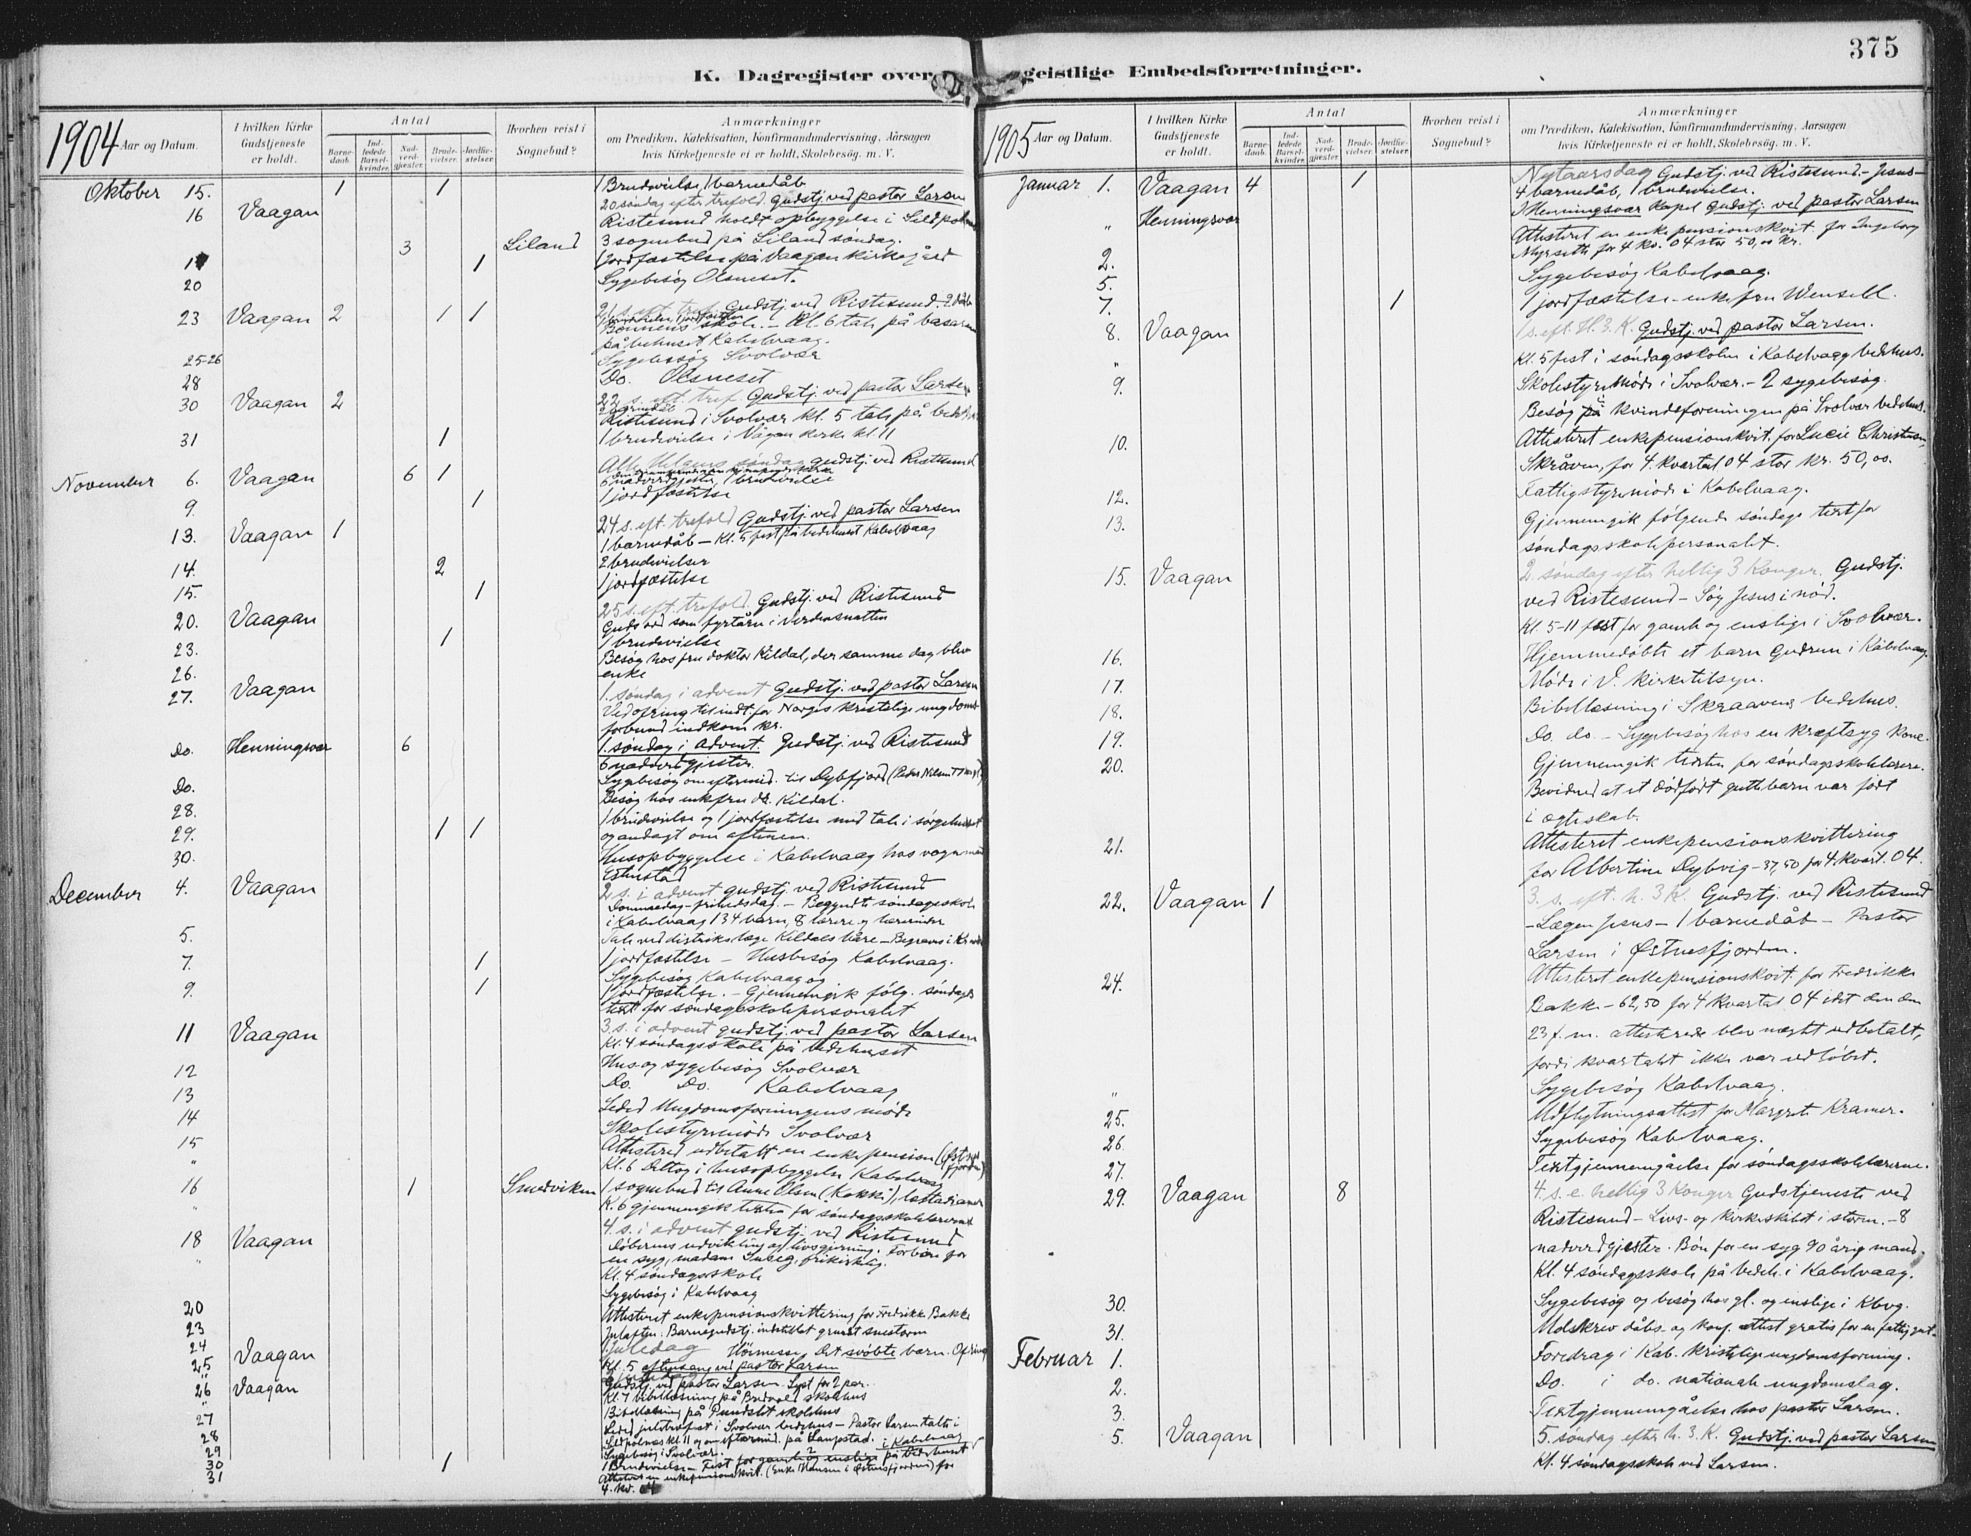 375
K. Dagregister over geistlige Embedsforretninger.
1904 Aar og Datum.
I hvilken Kirke Gudstjeneste er holdt.
Antal
Barnedaab.
Indledede Barselkvinder.
Nadverdgjester.
Brudevielser.
Jordfæstelser.
Hvorhen reist i Sognebud?
Anmærkninger
om Prædiken, Katekisation, Konfirmandundervisning, Aarsagen
hvis Kirketjeneste ei er holdt, Skolebesøg. m. V.
Oktober 15. 1 1 1 Brudevielse 1 barnedåb
16 Vaagan 20 søndag efter trefold. Gudstj. ved pastor Larsen
Ristesund holdt opbyggelse i
3 Liland 3 sognebud på Liland søndag.
1 1 jordfæstelse på Vaagan kirkegård
20 Sygebesøg Olsneset.
23 Vaagan 2 1 1 21 s. eft. tref. Gudstj. ved Ristesund. 2 dåb
Kl. 6 tale på basaren
på bedehuset Kabelvaag.
25-26 Sygebesøg Svolvær
28 Do. Olsneset
30 Vaagan 2 22 s. eft. tref. Gudstj. ved pastor Larsen
Ristesund i Svolvær kl. 5 tale på
31 1 1 brudevielse i Vågan kirke kl. 11
November 6. Vaagan 6 1 Alle Helgens søndag gudstj. ved Ristesund
6 nadverdgjester, 1 brudevielse
9. 1 1 jordfæstelse
13. Vaagan 1 24 s. eft. trefold Gudstj. ved pastor Larsen
1 barnedåb – Kl. 5 fest på bedehuset Kabelvaag
14. 2 2 brudevielser
15. 1 1 jordfæstelse
20. Vaagan 25 s. eft. trefold. Gudstj. ved Ristesund
Guds ord som fyrtårn i Verdensnatten
23. 1 1 brudevielse
26. Besøg hos fru doktor Kildal, der samme dag blev
enke
27. Vaagan 1. søndag i advent Gudstj. ved pastor Larsen
Ved ofring til indt. for Norges kristelige ungdoms-
forbund indkom kr.
Do. Henningsvær 6 1. søndag i advent. Gudstj. ved Ristesund
6 nadverdgjester.
Do. Sygebesøg om eftermid. til Dybfjord
28. Besøg hos enkefru dr. Kildal.
29. 1 1 1 brudevielse og 1 jordfæstelse med tale i sørgehuset
og andagt om aftenen.
30. Husopbyggelse i Kabelvaag hos
December 4. Vaagan 2 s. i advent gudstj. ved Ristesund
Dommedag – frihedsdag. – Begyndte søndagsskole
i Kabelvaag 134 barn, 8 lærere og lærerinder
5. Tale ved distriktslæge Kildals båre –
7. 1 1 jordfæstelse – Husbesøg Kabelvaag.
Sygebesøg Kabelvaag og
9. 1 1 jordfæstelse. – Gjennemgik følg. søndags
text for søndagsskolepersonalet
11 Vaagan 3. s. i advent gudstj. ved pastor Larsen
Kl. 4 søndagsskole på bedehuset
12 Hus og sygebesøg Svolvær
13 Do. Do. Kabelvaag
14 Leded Ungdomsforeningens møde
15 Skolestyremøde Svolvær
" Attestered udbetalt en enkepension
Kl. 6 Deltog i husopbyggelse Kabelvaag
16 1 Smedviken 1 sognebud til Anne Olsen
" K. 6 gjennemgik texten for søndagsskolelærerne
18 Vaagan 4. s. i advent gudstj. ved Ristesund
Døberens udvikling og livsgjerning. Forbøn for
en syg, madam
" Kl. 4 søndagsskole
Sygebesøg i Kabelvaag
20 Attesteret enkepensionskvittering for Fredrikke Bakke
23 Juleaften: Barnegudstj. indstillet grundet snestorm
24
25 Vaagan Juledag Høimesse Det svøbte barn. Ofring
" Kl. 5 aftensang ved pastor Larsen
26 Vaagan Gudstj. ved pastor Larsen.
" Kl. 7 bibellæsning på
27 Bibellæsning på skolehus
28 Leded juletræfest i Svolvær bedehus – Pastor Larsen talte i
29 Sygebesøg i Svolvær.
30 1 1 Brudevielse – Fest for gamle og enslige på bedehuset
31 Attesteret en enkepensionskvit.
4. kv. 04
1905 Aar og Datum.
I hvilken Kirke Gudstjeneste er holdt.
Antal
Barnedaab.
Indledede Barselkvinder.
Nadverdgjester.
Brudevielser.
Jordfæstelser.
Hvorhen reist i Sognebud?
Anmærkninger
om Prædiken, Katekisation, Konfirmandundervisning, Aarsagen
hvis Kirketjeneste ei er holdt, Skolebesøg. m. V.
Januar 1. Vaagan 4 1 Nytaarsdag Gudstj. ved Ristesund – Jesus –
4 barnedåb, 1 brudevielse.
" Henningsvær I Henningsvær kapel Gudstj. ved pastor Larsen
2. Attesteret en enkepensionskvit. for Ingeborg
Myrseth for 4 kv. 04 stor 50,00 kr.
5. Sygebesøg Kabelvaag.
7. 1 1 jordfæstelse – enkefru Wensell.
8. Vaagan 1 s. eft. H. 3. K. Gudstj. ved pastor Larsen.
" Kl. 5 fest i søndagsskolen i Kabelvaag bedehus.
9. Skolestyremøde i Svolvær. – 2 sygebesøg.
Besøg på kvindeforeningen på Svolvær bedehus.
10. Attesteret enkepensionskvit. for Lucie Christensen,
Skråven, for 4. kvartal 04 stor kr. 50,00.
12. Fattigstyremøde i Kabelvaag.
13. Gjennemgik følgende søndags text for
søndagsskolepersonalet.
15. Vaagan 2. søndag efter hellig 3 Konger. Gudstj.
ved Ristesund – Søg Jesus i nød.
Kl. 5–11 fest for gamle og enslige i Svolvær.
16. Hjemmedøbte et barn Gudrun i Kabelvaag.
17. Møde i V. kirketilsyn.
18. Bibellæsning i Skraavens bedehus.
19. Do. do. – Sygebesøg hos en kræftsyg kone.
20. Gjennemgik texten for søndagsskolelærere.
Bevidned at et dødfødt guttebarn var født
i ægteskab.
21. Attesteret enkepensionskvittering
for Albertine Dybvig – 37,50 for 4. kvart. 04.
22. Vaagan 1 3. s. eft. h. 3 K. Gudstj. ved Ristesund
– Lægen Jesus – 1 barnedåb – Pastor
Larsen i Østnesfjorden.
24. Attesteret enkepensionskvit. for Fredrikke
Bakk – 62,50 for 4 kvartal 04 idet den den
23 f. m. attesterede blev nægtet udbetalt,
fordi kvartalet ikke var udløbet.
" Sygebesøg Kabelvaag.
25. Udflytningsattest for Margrete Kramer.
26 Sygebesøg Kabelvaag.
27. Textgjennemgåelse for søndagsskolelærerne.
29. Vaagan 8 4. s. e. hellig 3 Konger Gudstjeneste ved
Ristesund – Livs- og kirkeskibet i storm. – 8
nadverdgjester. Bøn for en syg 90 årig mand.
Kl. 4 søndagsskole på bedeh. i Kabelvaag.
30. Sygebesøg og besøg hos gl. og enslige i Kbvg.
31. Udskrev dåbs- og konf. attest gratis for en fattig gut.
Februar 1. Foredrag i Kab. kristelige ungdomsforening.
2. Do. i do. nationale ungdomslag.
3. Textgjennemgåelse hos pastor Larsen.
5. Vaagan 5. søndag efter h. 3. K. Gudstj. ved pastor Larsen
Kl. 4 søndagsskole ved Larsen.